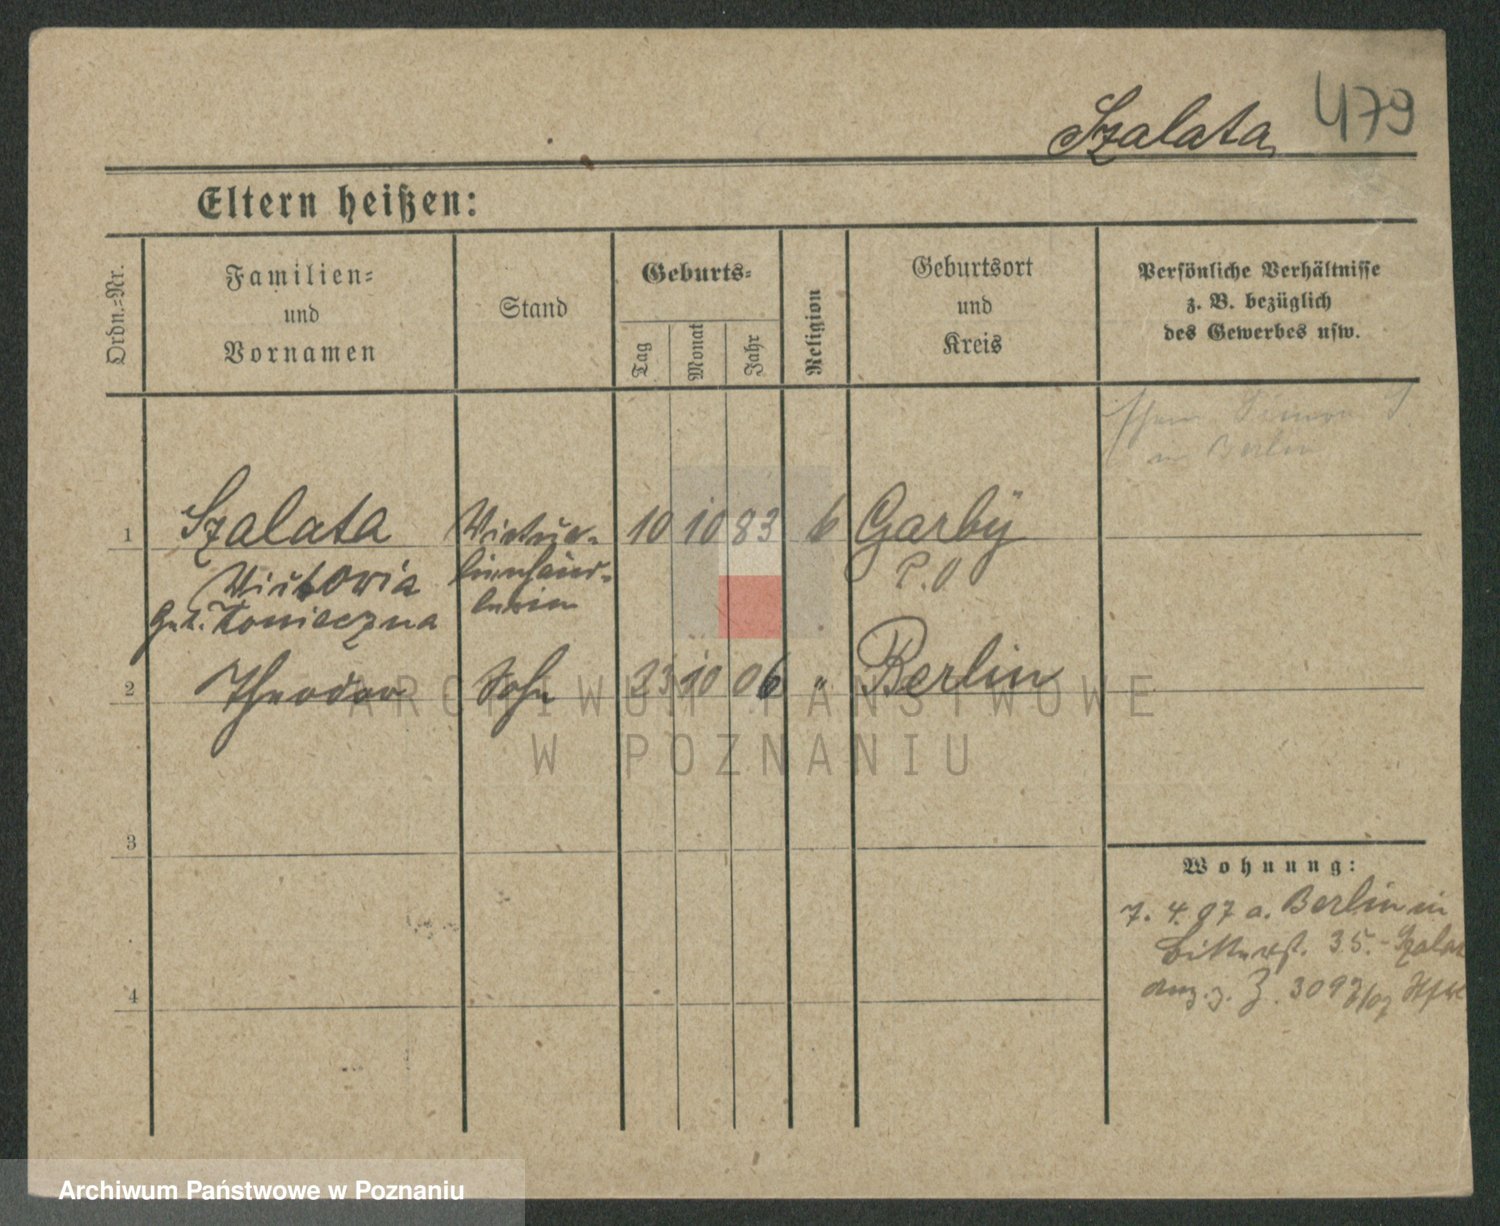 Szalata
479
Eltern heißen:
Ordn.-Nr.
Familien-
und
Vornamen
Stand
Geburts-
Tag
Monat
Jahr
Religion
Geburtsort
und
Kreis
Persönliche Verhältnisse
z. B. bezüglich
des Gewerbes usw.
in Berlin
1
Szalata
Victoria
geb. Konieczna
Victua-
lienhänd-
lerin
10 10 83
Garby
P. O
2
Theodor
Sohn
23 10 06
"
Berlin
3
4
Wohnung:
7. 4. 07 a. Berlin in
35. - Szalat
3093/07
ARCHIWUM PAŃSTWOWE
W POZNANIU
Archiwum Państwowe w Poznaniu